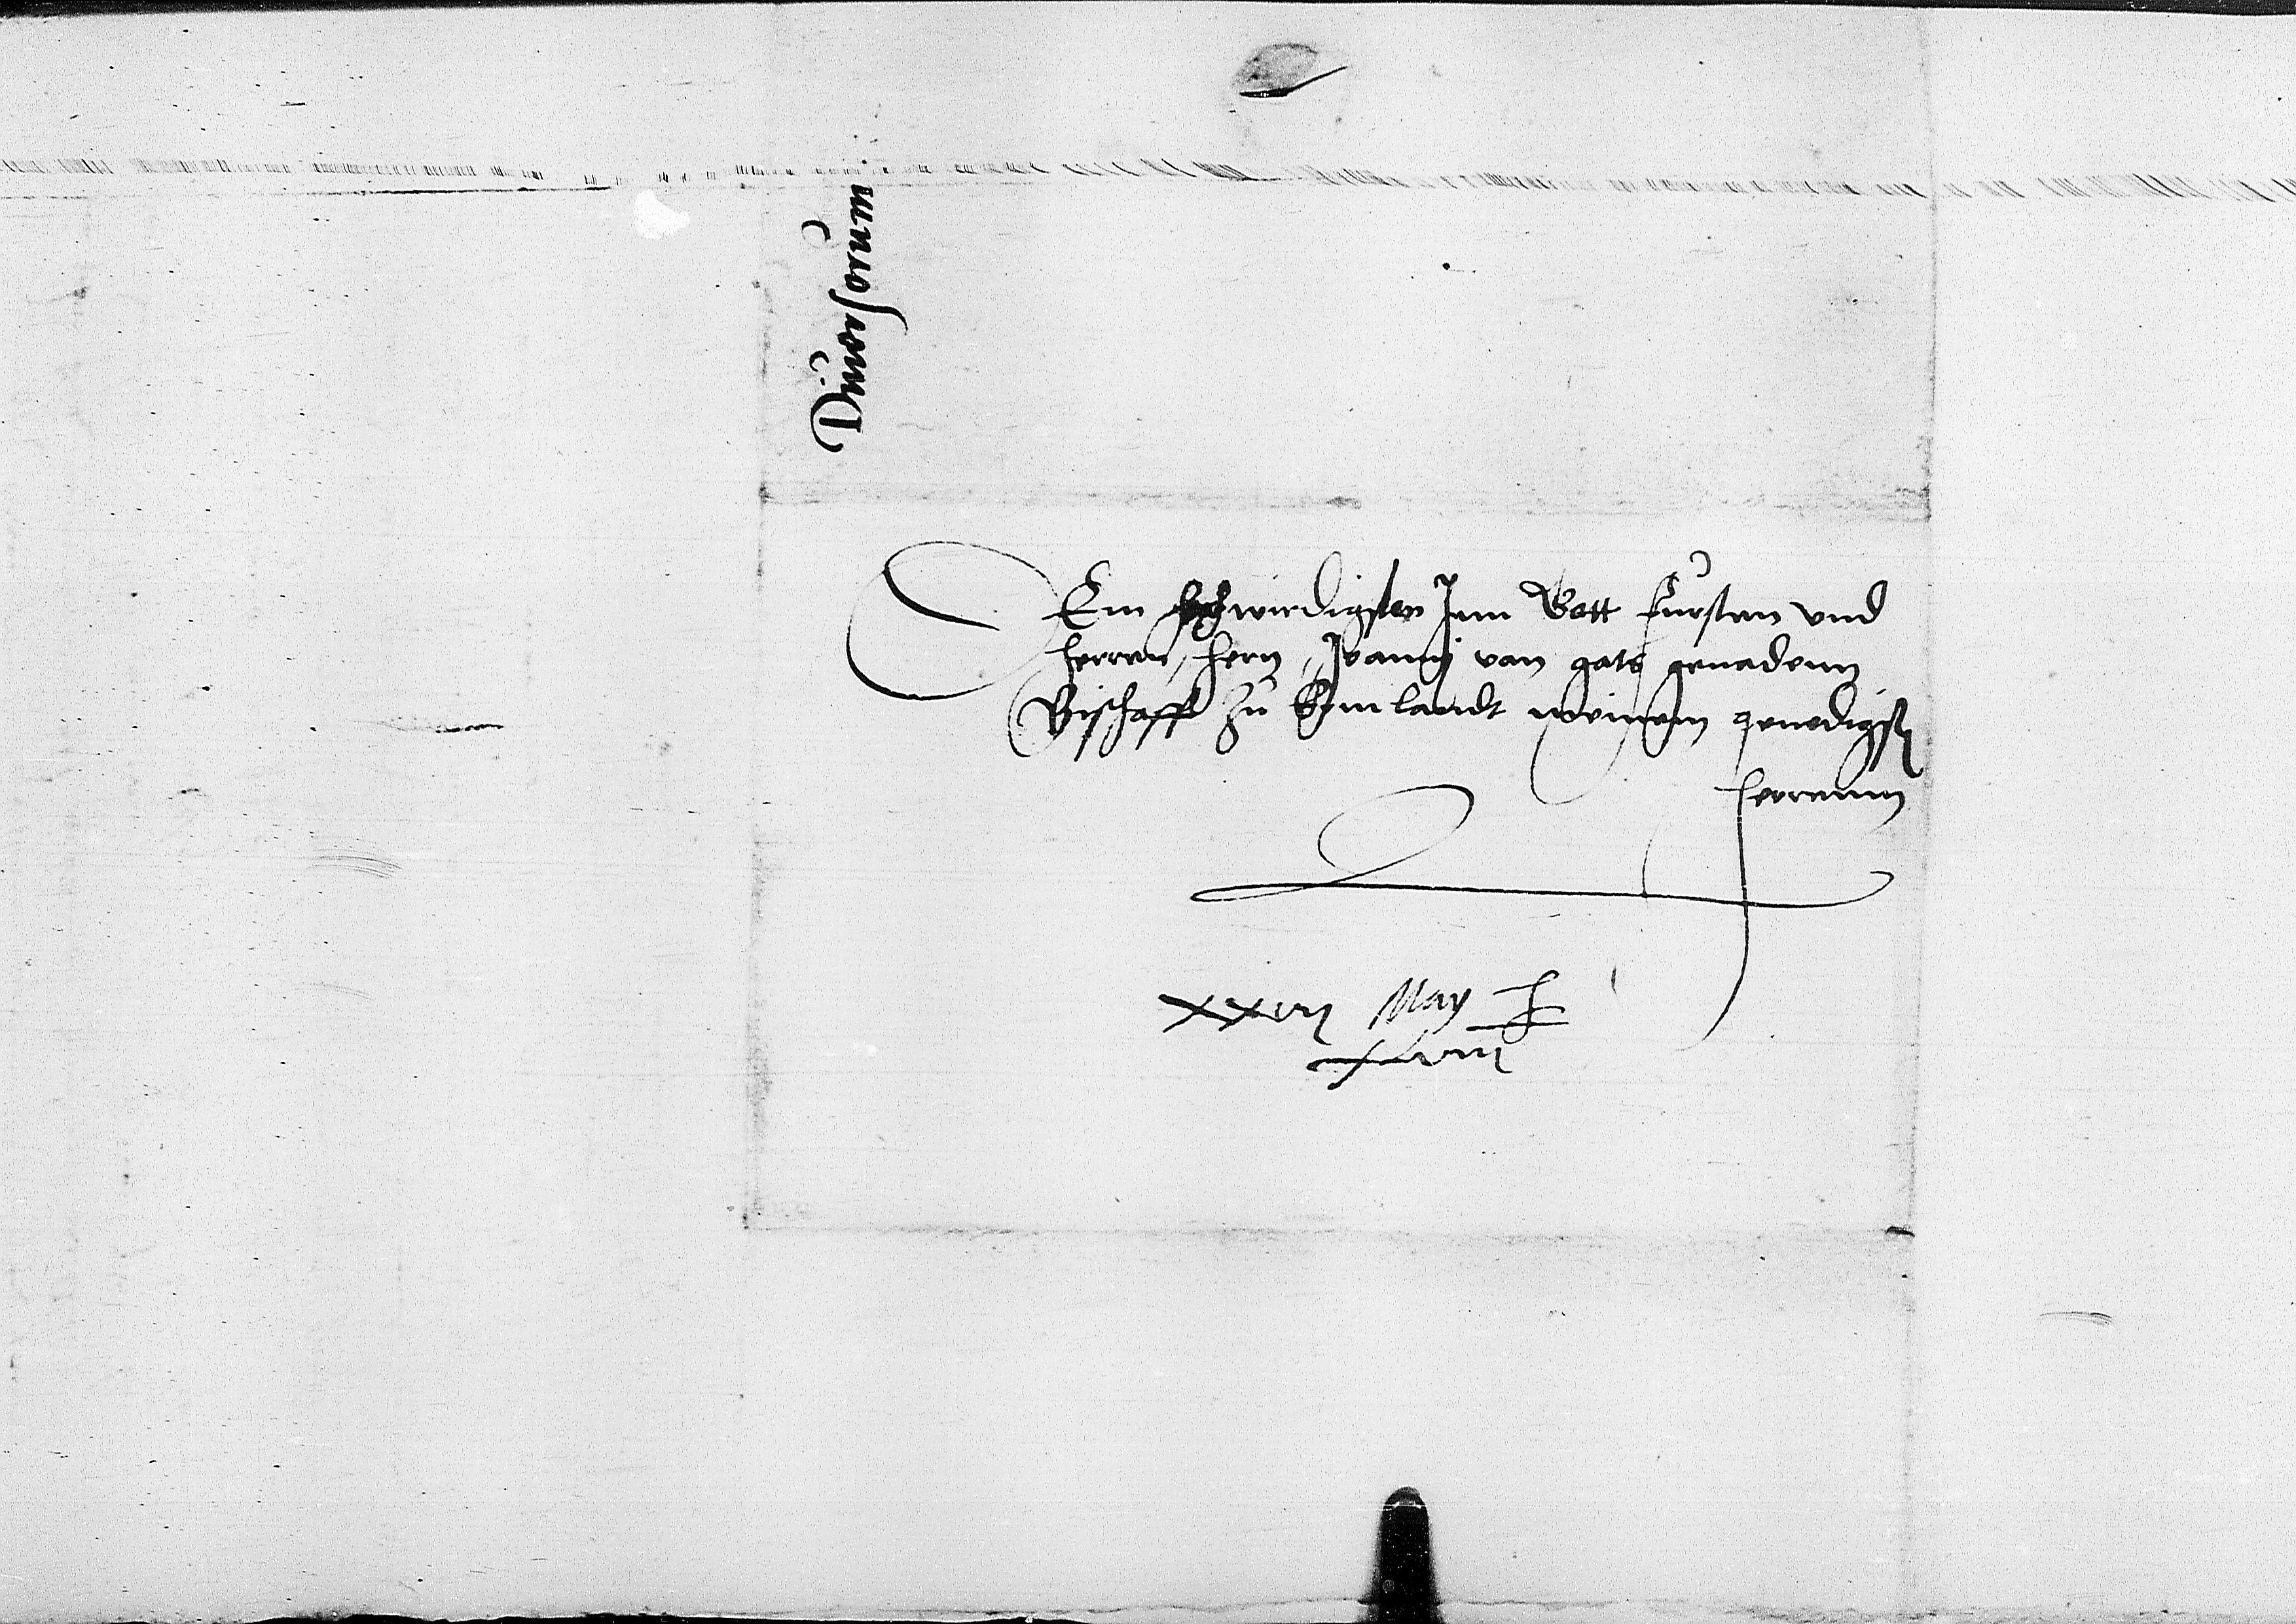 Diuersorum
DEm hochwirdigsten Inn Gott fursten vnd
herren, hern, Joanni von gots genadenn
Bischoff zu Ermlandt meinem genedigst
herrenn
May
xlviii